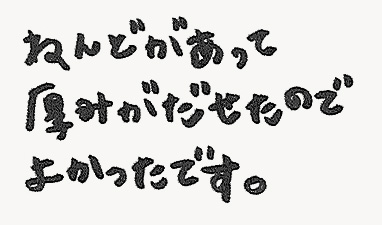 ねんどがあって
厚みがだせたので
よかったです。